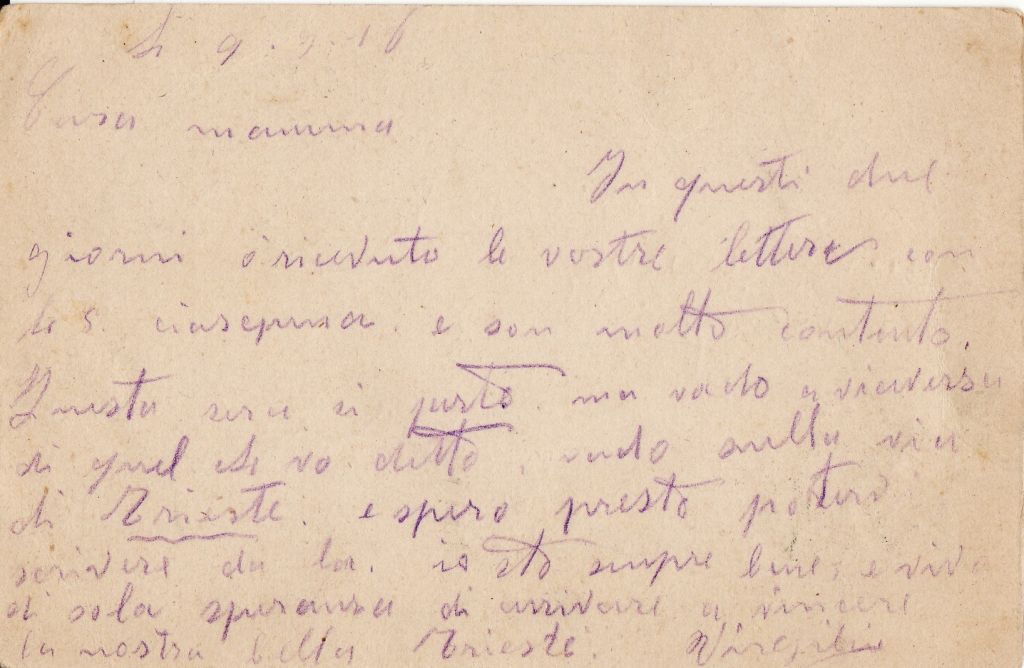 Li 9.9.16
Cara mamma
In questi due
giorni ò ricevuto le vostre lettere con
le 5. e son molto contento.
Questa sera si parte ma vado a viaversa
di quel che vo detto, vado sulla via
di Trieste. e spero presto potervi
scrivere da la. io sto sempre bene, e vivo
di sola speranza di arrivare a vincere
la nostra bella Trieste. Virgilio